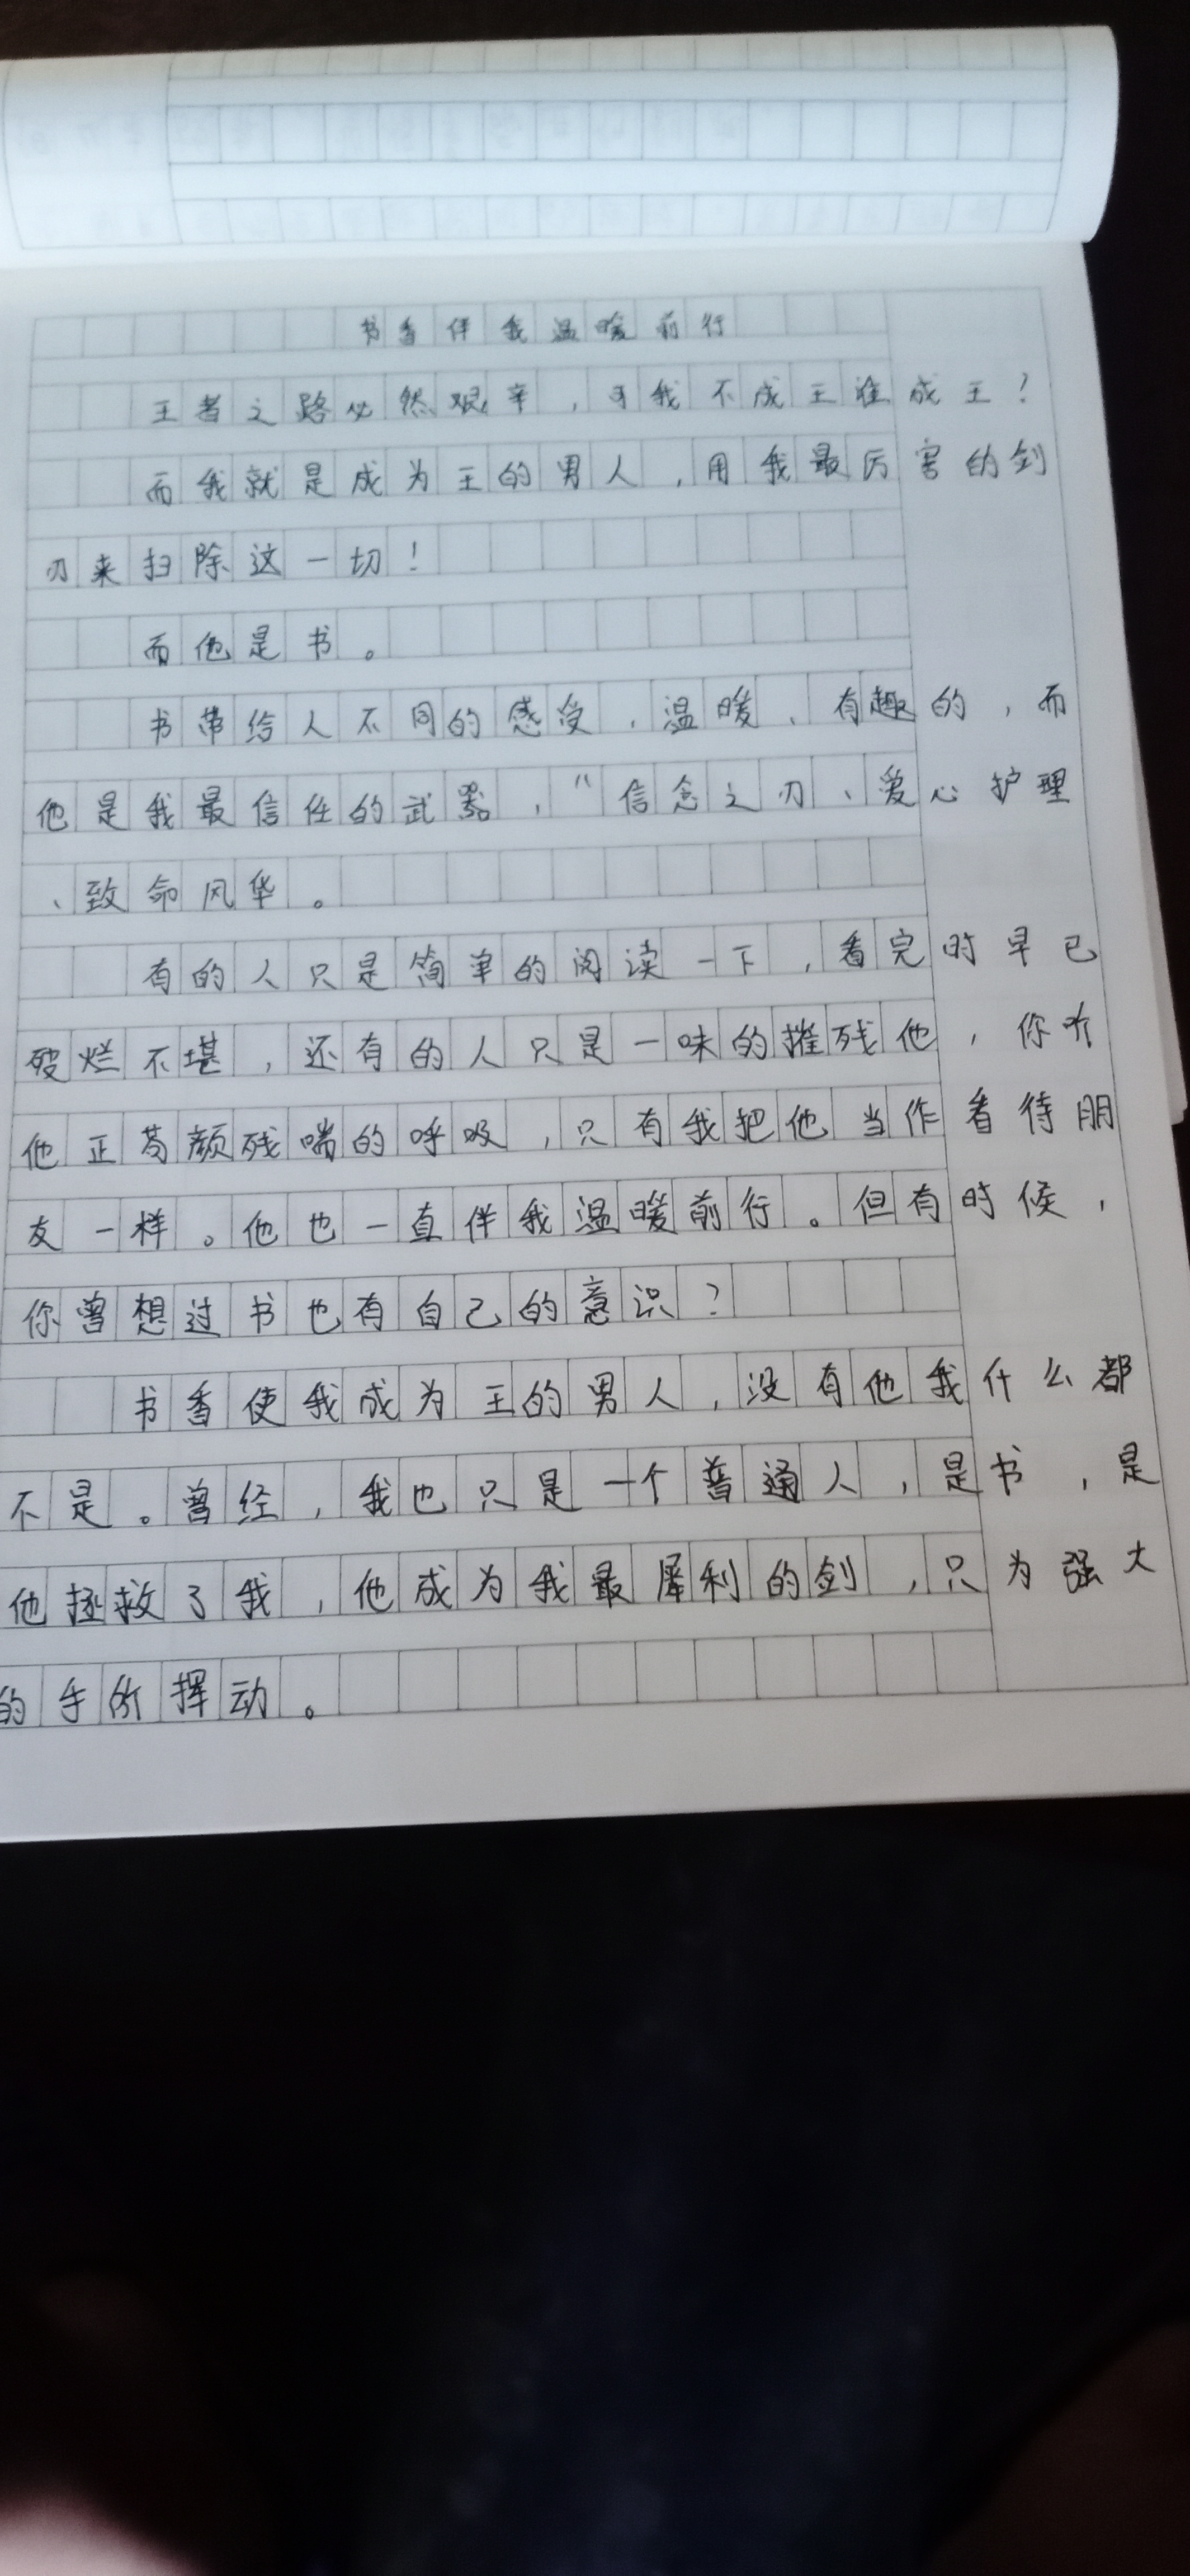 书香伴我温暖前行
王者之路必然艰辛，我不成王谁成王？
而我就是成为王的男人，用我最厉害的剑
刃来扫除这一切！
而他是书。
书带给人不同的感受，温暖、有趣的，而
他是我最信任的武器，“信念之刃、爱心护理
、致命风华。
有的人只是简单的阅读一下，看完时早已
破烂不堪，还有的人只是一味的摧残他，你听
他正苟颜残喘的呼吸，只有我把他当作看待朋
友一样。他也一直伴我温暖前行。但有时候，
你曾想过书也有自己的意识？
书香使我成为王的男人，没有他我什么都
不是。曾经，我也只是一个普通人，是书，是
他拯救了我，他成为我最犀利的剑，只为强大
的手所挥动。